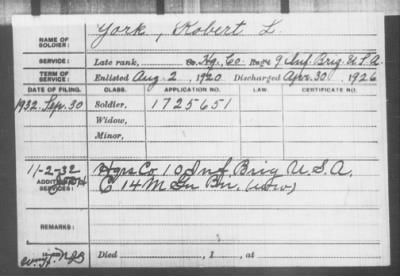 NAME OF SOLDIER: York, Robert L.
SERVICE: Late rank, Co. Hq. Co Reg't 9 Inf. Brig. U.S.A.
TERM OF SERVICE: Enlisted Aug. 2, 1920 Discharged Apr. 30, 1926
DATE OF FILING. CLASS. APPLICATION NO. LAW. CERTIFICATE NO.
1932, Sep. 30 Soldier, 1725651
Widow,
Minor,
11-2-32 Hqrs Co 10 Inf Brig U.S.A.
ADDITIONAL SERVICES: C 14 M Gn Bn. (WW)
REMARKS:
Died , 1 , at